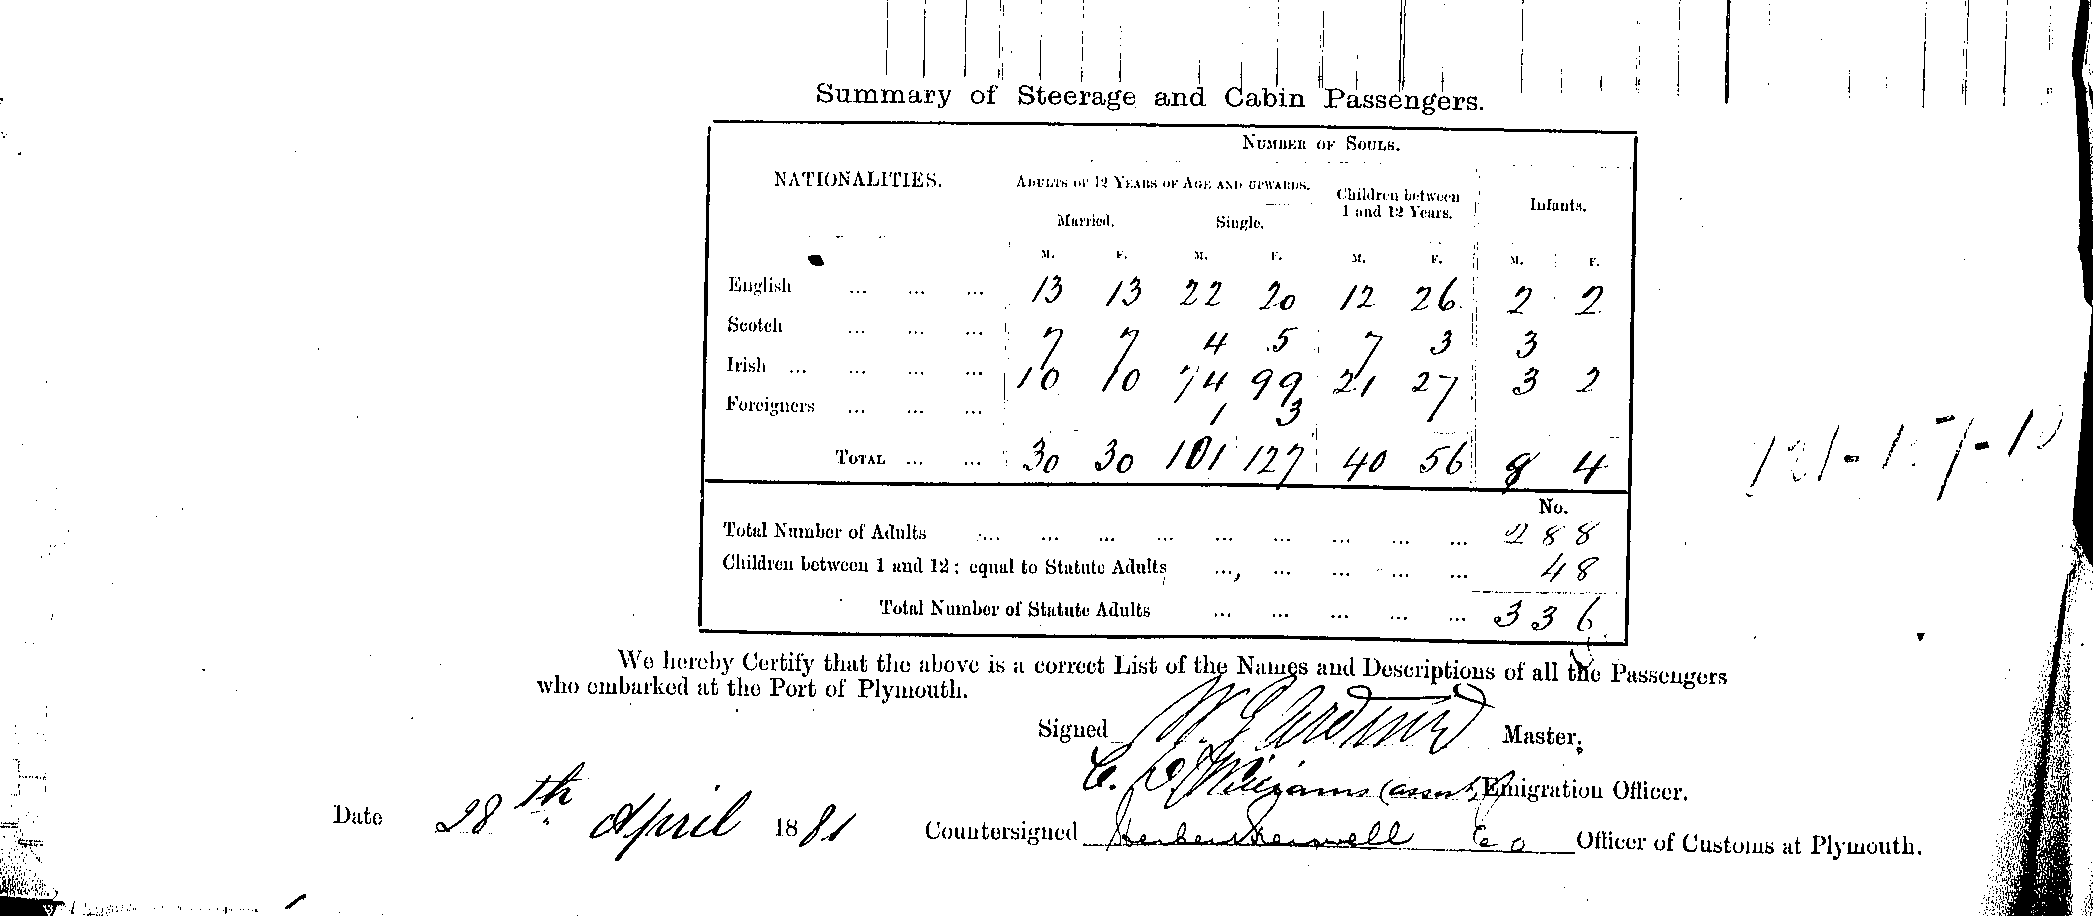 Summary of Steerage and Cabin Passengers.
NUMBER OF SOULS.
NATIONALITIES. ADULTS OF 12 YEARS OF AGE AND UPWARDS. Children between 1 and 12 Years. Infants.
Married. Single.
M. F. M. F. M. F. M. F.
English ... ... ... 13 13 22 20 12 26 2 2
Scotch ... ... ... 7 7 4 5 7 3 3
Irish ... ... ... ... 10 10 74 99 21 27 3 2
Foreigners ... ... ... 1 3
TOTAL ... ... 30 30 101 127 40 56 8 4
No.
Total Number of Adults ... ... ... ... ... ... ... ... ... 288
Children between 1 and 12; equal to Statute Adults ..., ... ... ... ... 48
Total Number of Statute Adults ... ... ... ... ... 336
We hereby Certify that the above is a correct List of the Names and Descriptions of all the Passengers
who embarked at the Port of Plymouth.
Signed W. Master.
C. Williams (asst) Emigration Officer.
Date 28th April 1881 Countersigned Co Officer of Customs at Plymouth.